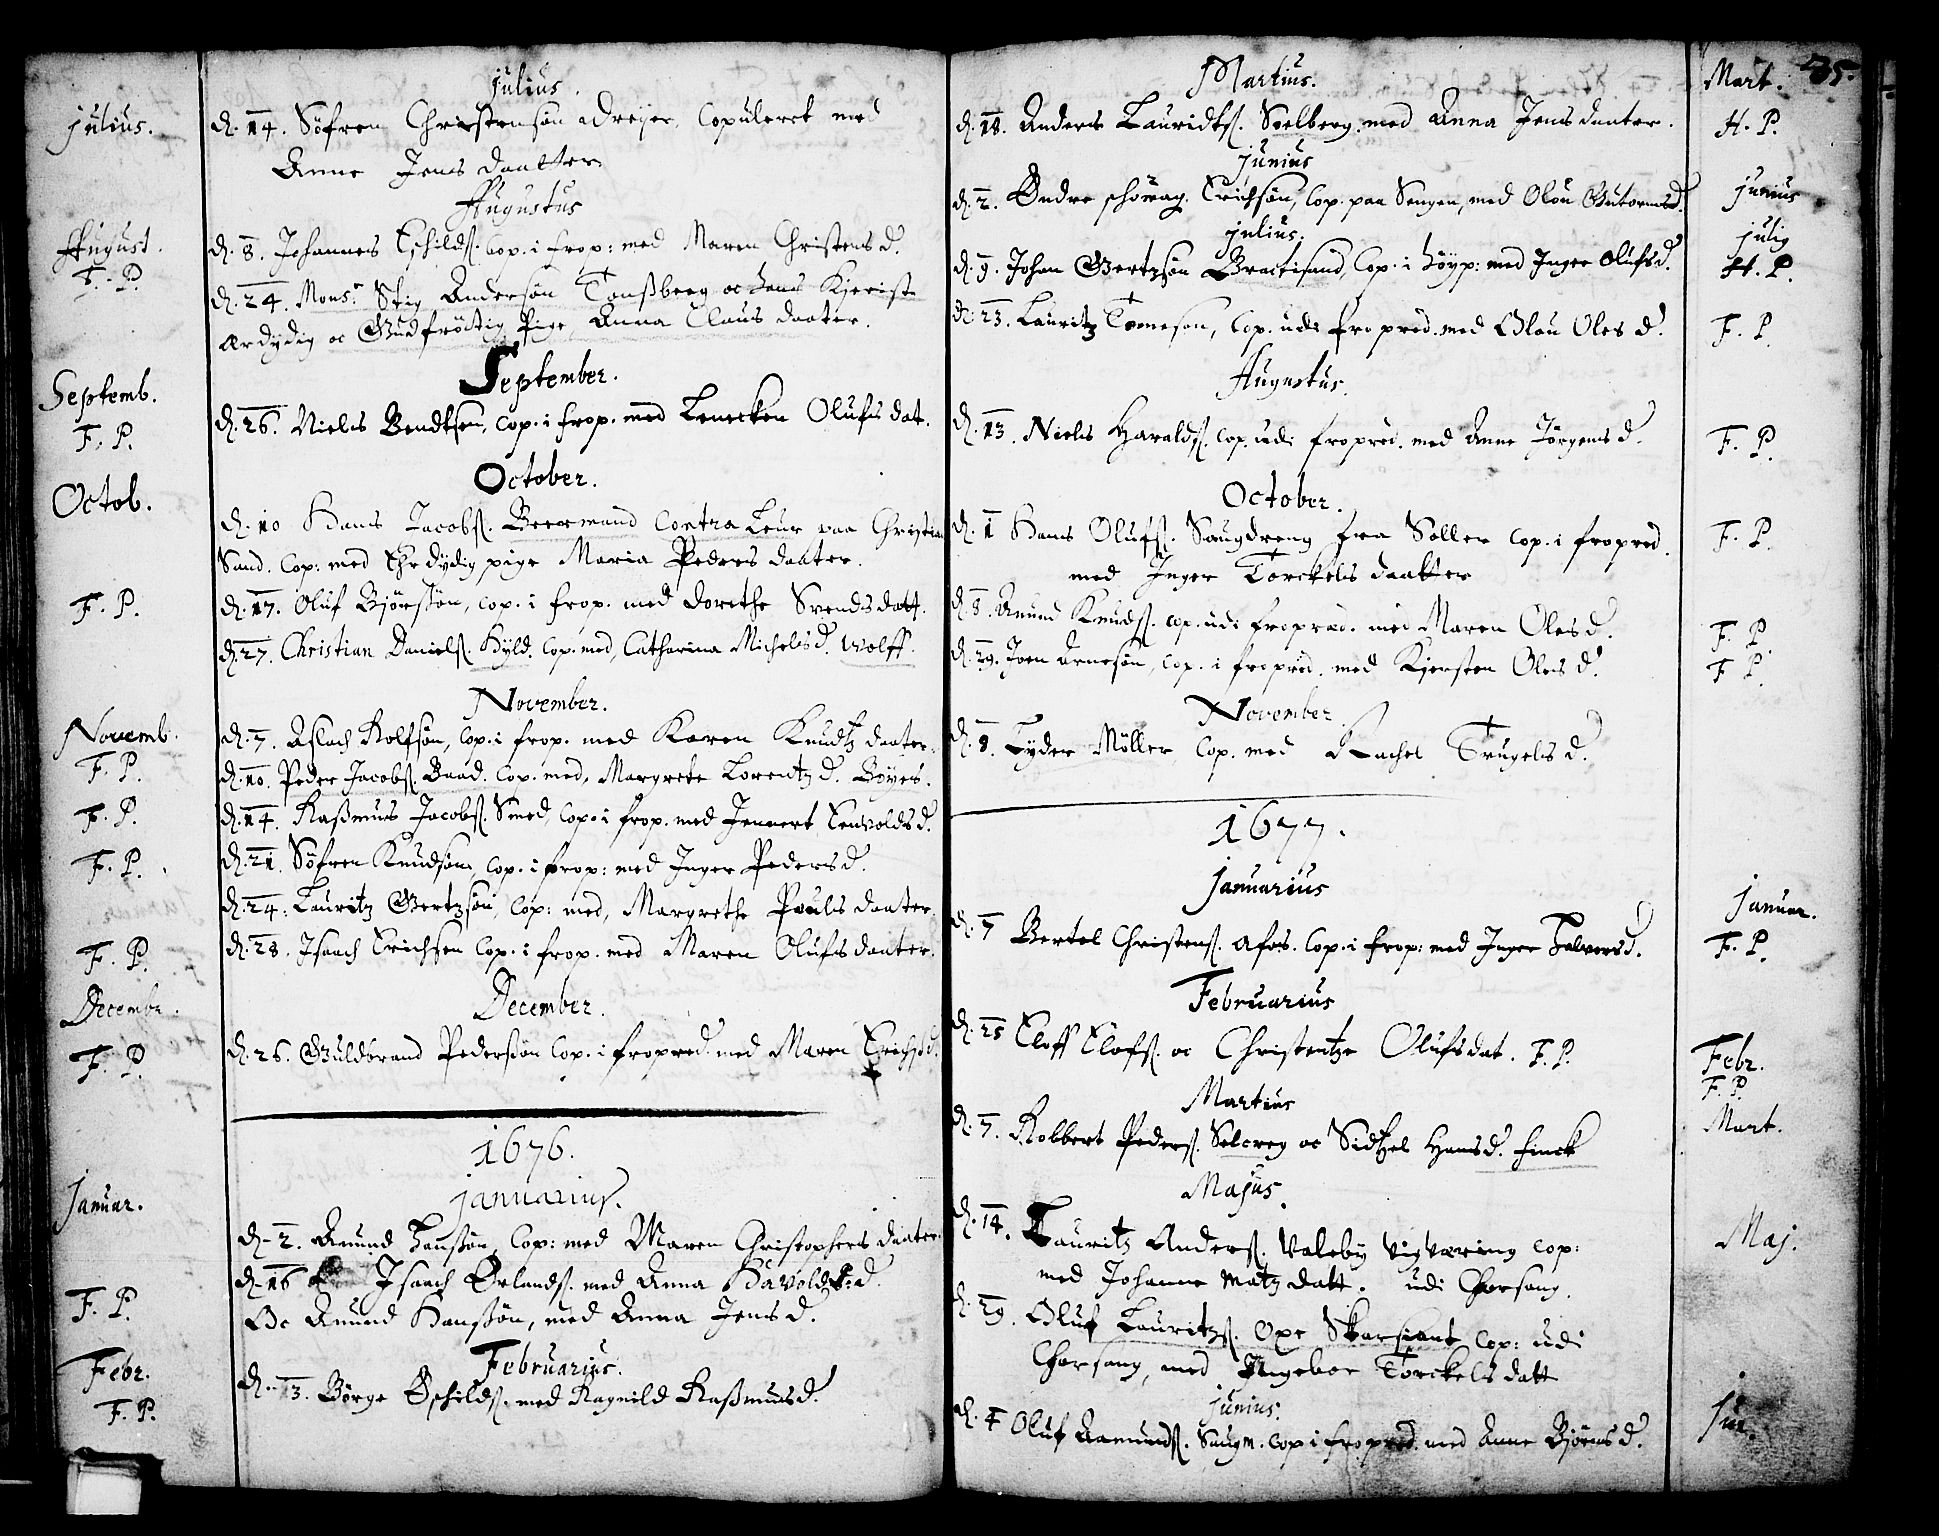 Julius.
Julius.
d. 14. Söfren Christensøn Dreyer, Copuleret med
Anne Jens daatter.
Augustus
August.
d. 8. Johannes Eschilds. cop. i frop: med Maren Christens d.
F. P.
d. 24. Mons.r Stig Andersøn Tonßberg oc hans Kieriste
ærdydig oc Gudfröctig Pige, Anna Claus daater.
September.
Septemb.
d. 26. Niels Bendtsen, cop. i frop. med Lenecken Olufs dat.
F. P.
October.
Octob.
d. 10 Hans Jacobs. Beermand Contra Leur paa Christian
Sand. Cop: med Ehr dydig pige Maria Peders daater.
d. 17. Oluf Bjørßön, cop. i frop. med Dorethe Svends datt.
F. P.
d. 27. Christian Daniels. Hyld. Cop. med, Catharina Michels d. Wolff.
November.
Novemb.
d. 7. Aslach Rolfsøn, Cop. i frop. med Karen Knudtz daater.
F. P.
d. 10. Peder Jacobs. Baad. Cop. med, Margrete Lorentz d. Böyes.
d. 14. Raßmus Jacobs. Smed, Cop. i frop. med Jennert Envolds d.
F. P.
d. 21. Söfren Knudsøn cop. i frop: med Inger Peders d.
F. P.
d. 24. Lauritz Gertzsøn, Cop: med, Margrethe Pouls daater.
d. 28. Isaach Erichsen Cop. i frop. med Maren Olufs daater.
F. P.
December.
Decembr.
d. 26. Guldbrand Pedersøn Cop. i fropred. med Maren Erichs d.
F. P.
1676.
Januarius.
Januar.
d. 2. Amund Hansøn, Cop: med Maren Christophers daater.
d. 16 Isaach Ørlands. med Anna Håvolds: d.
Oc Amund Hanßön, med Anna Jens d.
F. P.
Februarius.
Febr.
d. 13. Börge Øschilds. med Ragnild Raßmus d.
F. P.
35.
Martius.
Mart.
d. 18. Anders Lauridts. Svelberg. med Anna Jens daater.
H. P.
Junius
Junius
d. 2. Endre Erichsøn, Cop. paa Sengen, med Olou Gutorms d.
Julius.
Julig
d. 9. Johan Gertzsøn Bractisand, Cop. i höyp: med Inger Olufs d.
H. P.
d. 23. Lauritz Tomeson, Cop. udi fropred. med Olou Oles d.
F. P.
Augustus.
d. 13. Niels Haralds. Cop. udi fropred. med Anne Jörgens d.
F. P.
October.
d. 1 Hans Olufs. Saugdreng fra Soller cop. i fropred.
F. P.
med Inger Torckels daatter
d. 8. Amund Knuds. cop. udi fropred. med Maren Oles d.
F. P.
d. 29. Joen Arnesøn, Cop. i fropred. med Kjersten Oles d.
F. P.
November.
d. 8. Lyder Möller Cop. med Rachel Trugels d.
1677.
Januarius
Januar.
d. 7 Bertel Christens. Afos. Cop. i frop: med Inger Halvors d.
F. P.
Februarius
d. 25 Eloff Elofs. oc Christentze Olufs dat. F. P.
Febr.
F. P.
Martius
Mart.
d. 7. Robbert Peders. Selcreg oc Sidtzel Hans d. Finck
Majus.
Maj.
d. 14. Lauritz Anders. Valeby Vigværing cop:
med Johanne Matz datt. udi Chorsang.
d. 29. Oluf Lauritzs. Oxe Skarsiant Cop: udi
Chorsang, med Ingebor Torckels datt
Junius.
Jun.
d. 4 Oluf Aamunds. Saugm. Cop i fropred. med Anne Bjørns d.